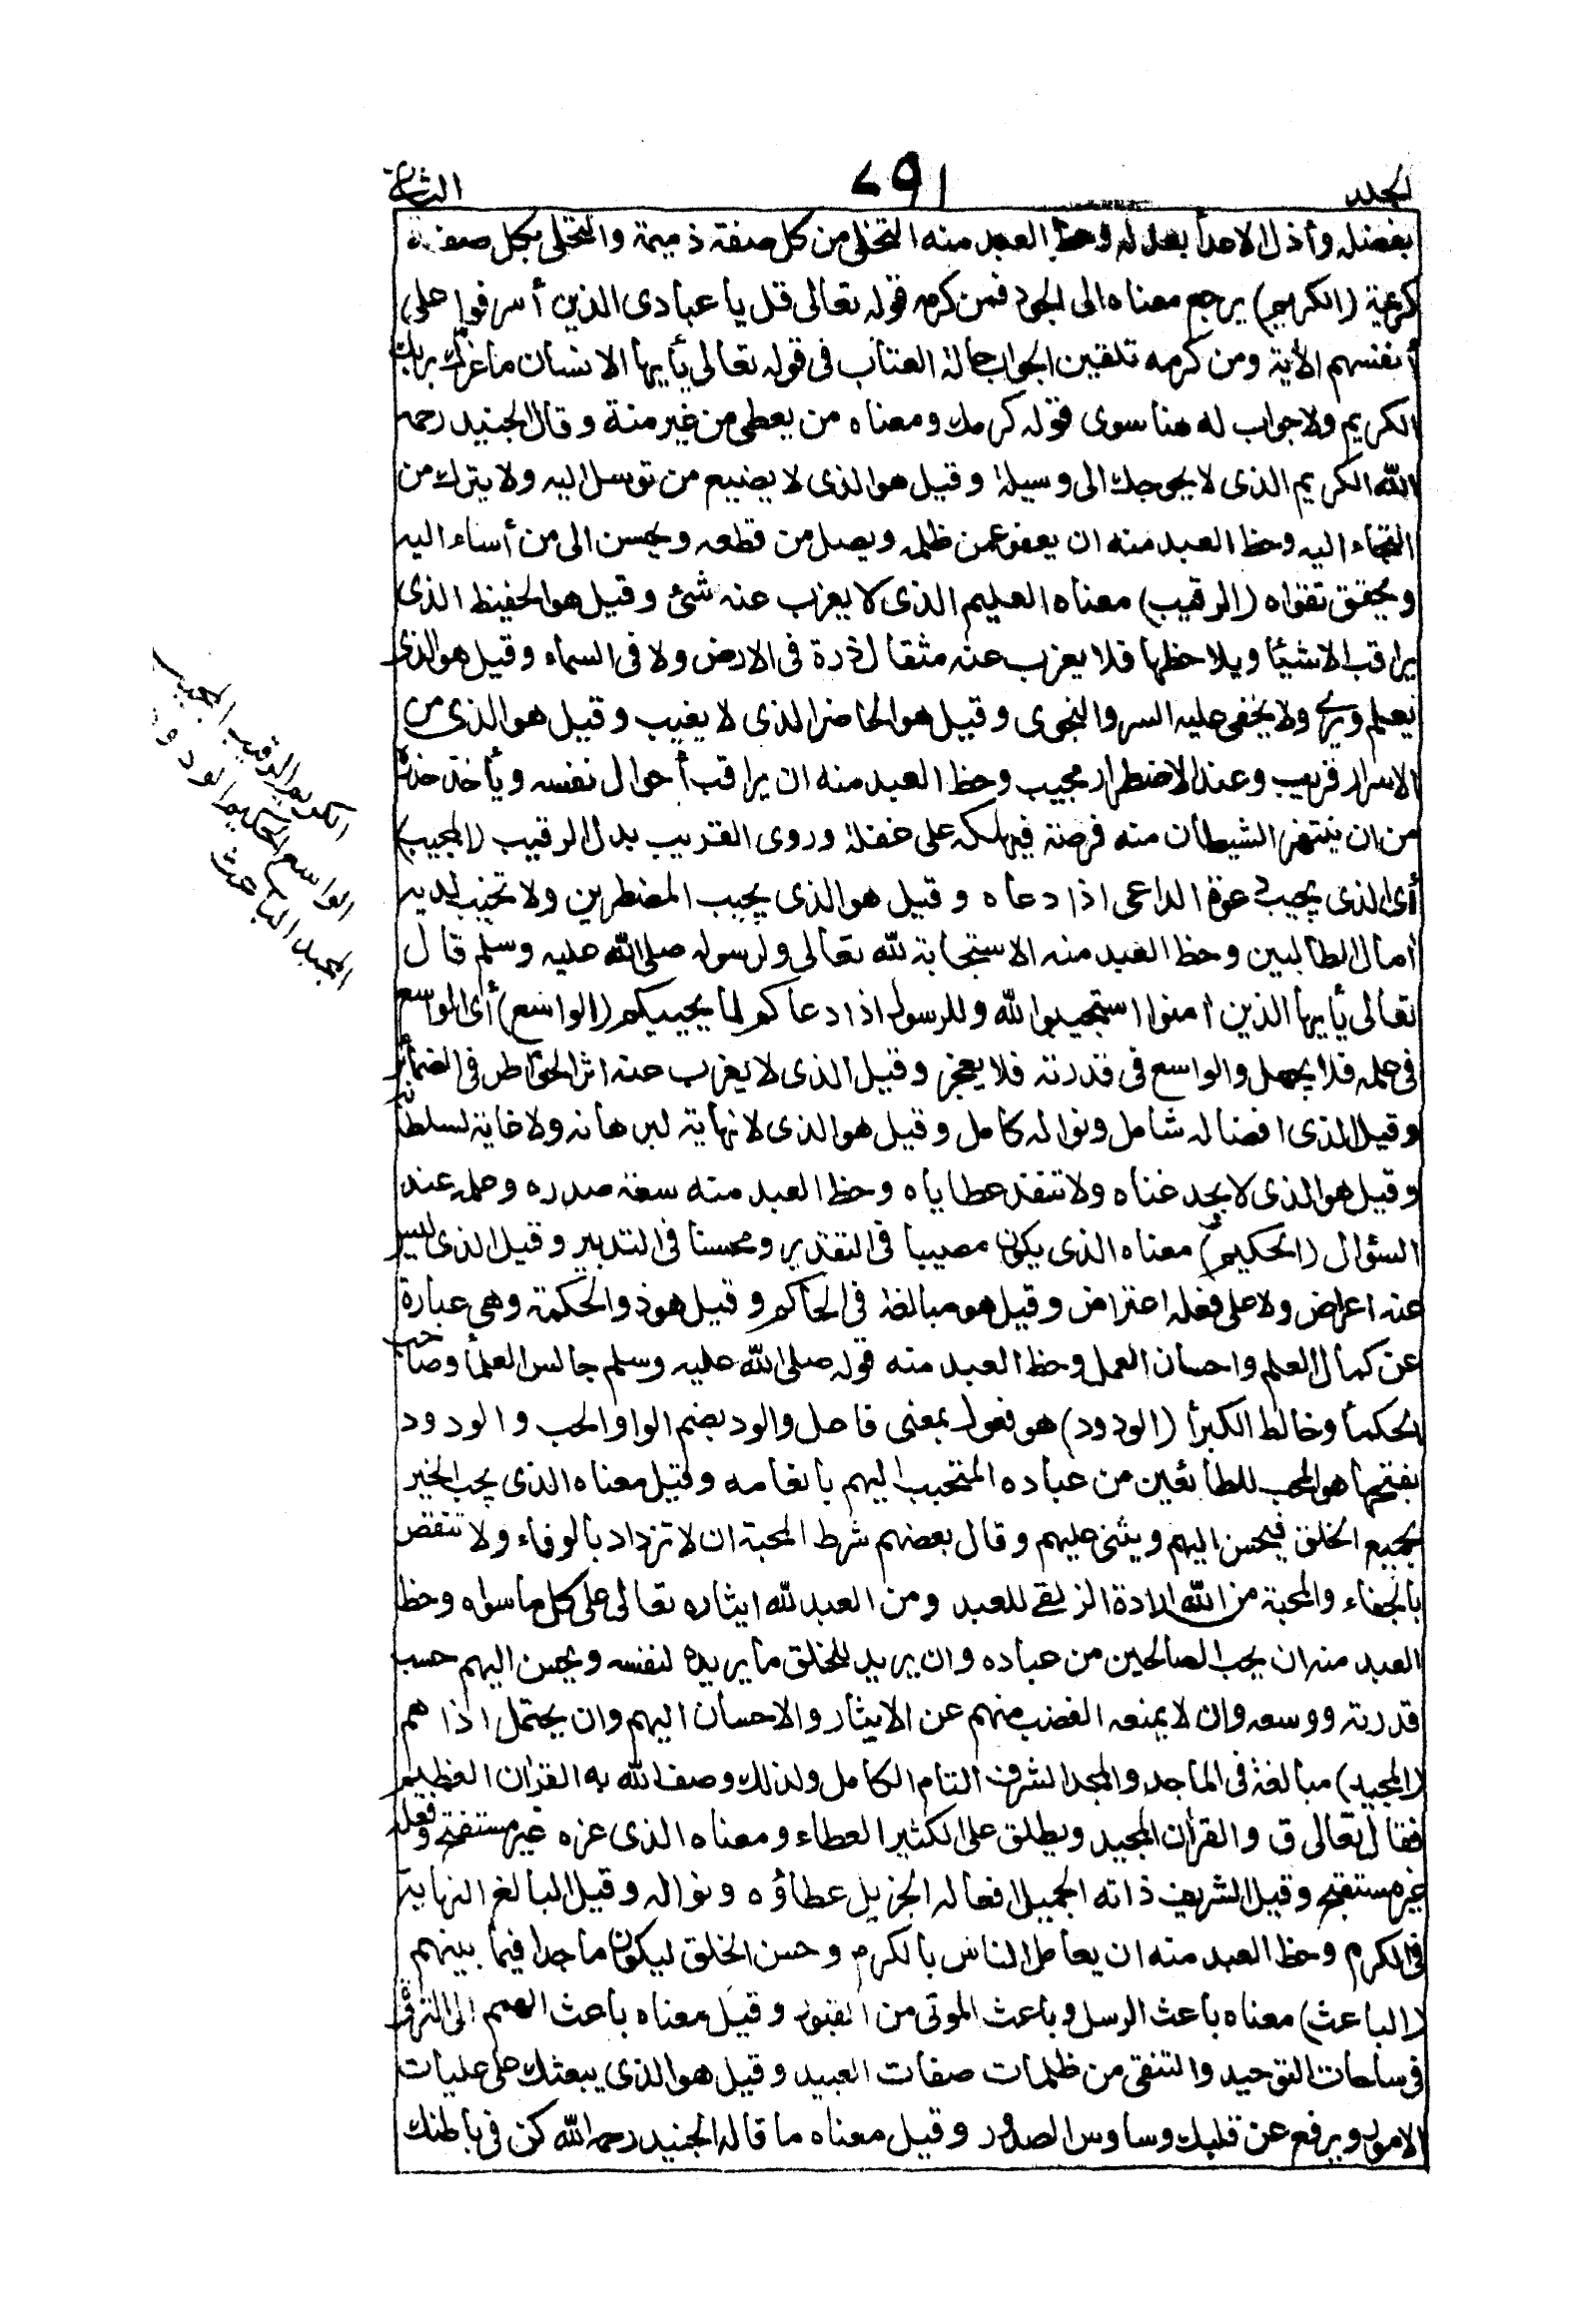 المجلد ٢٩١ الثانى
بفضله وأذل الاعدأ بعدله وحظ العبد منه التخلى من كل صفة ذميمة والتحلى بكل صفة
كريمة (الكريم) يرجع معناه الى الجود فمن كرمه قوله تعالى قل يا عبادى الذين أسرفوا على
أنفسهم الأية ومن كرمه تلقين الجواب حالة العتاب فى قوله تعالى يأيها الانسان ما غرك بربك
الكريم ولا جواب له هنا سوى قوله كرمك ومعناه من يعطى من غير منة وقال الجنيد رحمه
الله الكريم الذى لا يحوجك الى وسيلة وقيل هو الذى لا يضيع من توسل اليه ولا يترك من
التجاء اليه وحظ العبد منه ان يعفو عمن ظلمه ويصل من قطعه ويحسن الى من أساء اليه
ويحقق تقواه (الرقيب) معناه العليم الذى لا يعزب عنه شئ وقيل هو الحفيظ الذى
يراقب الاشيأ ويلاحظها فلا يعزب عنه مثقال ذرة فى الارض ولا فى السماء وقيل هو الذى
يعلم ويرى ولا يخفى عليه السر والنجوى وقيل هو الحاضر الذى لا يغيب وقيل هو الذى من
الاسرار قريب وعند الاضطرار مجيب وحظ العبد منه ان يراقب أحوال نفسه ويأخذ حذره
من ان ينتهز الشيطان منه فرصة فيهلكه على غفلة وروى القريب بدل الرقيب (المجيب)
أى الذى يجيب دعوة الداعى اذا دعاه وقيل هو الذى يجيب المضطرين ولا تخيب لديه
أمال الطالبين وحظ العبد منه الاستجابة لله تعالى ولرسوله صلى الله عليه وسلم قال
تعالى يأيها الذين امنوا استجيبوا لله وللرسول اذا دعاكم لما يحييكم (الواسع) أى الواسع
فى علمه فلا يجهل والواسع فى قدرته فلا يعجز وقيل الذى لا يعزب عنه اثر الخواطر فى الضمائر
وقيل الذى افضاله شامل ونواله كامل وقيل هو الذى لا نهاية لبرهانه ولا غاية لسلطانه
وقيل هو الذى لا يحد غناه ولا تنفذ عطاياه وحظ العبد منه سعة صدره وحلمه عند
السئوال (الحكيم) معناه الذى يكون مصيبا فى التقدير ومحسنا فى التدبير وقيل الذى ليس
عنه اعراض ولا على فعله اعتراض وقيل هو مبالغة فى الحاكم وقيل هو ذو الحكمة وهى عبارة
عن كمال العلم واحسان العمل وحظ العبد منه قوله صلى الله عليه وسلم جالس العلمأ وصاحب
الحكمأ وخالط الكبرأ (الودود) هو فعول بمعنى فاعل والود بضم الواو الحب والودود
بفتحها هو المحب للطائعين من عباده المتحبب اليهم بانعامه وقيل معناه الذى يحب الخير
لجميع الخلق فيحسن اليهم ويثنى عليهم وقال بعضهم شرط المحبة ان لا تزداد بالوفاء ولا تنقص
بالجفاء والمحبة من الله ارادة الزلفى للعبد ومن العبد لله ايثاره تعالى على كل ما سواه وحظ
العبد منه ان يحب الصالحين من عباده وان يريد للخلق ما يريده لنفسه ويحسن اليهم حسب
قدرته ووسعه وان لا يمنعه الغضب منهم عن الايثار والاحسان اليهم وان يحتمل اذا هم
(المجيد) مبالغة فى الماجد والمجد الشرف التام الكامل ولذلك وصف الله به القرأن العظيم
فقال تعالى ق والقرأن المجيد ويطلق على الكثير العطاء ومعناه الذى عزه غير مستفتح وفعله
غير مستقبح وقيل الشريف ذاته الجميل افعاله الجزيل عطاؤه ونواله وقيل البالغ النهاية
فى الكرم وحظ العبد منه ان يعامل الناس بالكرم وحسن الخلق ليكون ماجدا فيما بينهم
(الباعث) معناه باعث الرسل وباعث الموتى من القبور وقيل معناه باعث الهمم الى الترقى
فى ساحات التوحيد والتنقى من ظلمات صفات العبيد وقيل هو الذى يبعثك على عليات
الامور ويرفع عن قلبك وساوس الصدور وقيل معناه ما قاله الجنيد رحمه الله كن فى باطنك
الكريم الرقيب المجيب
الواسع الحكيم الودود
المجيد الباعث